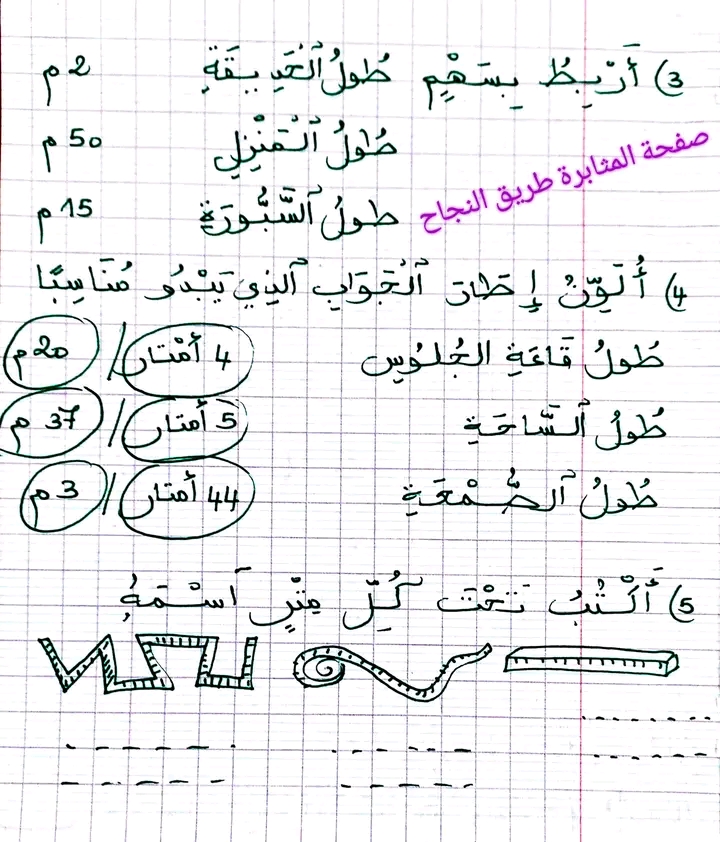 3) أَرْبِطُ بِسَهْمٍ طُولُ ٱلْحَدِيقَةِ 2 م
طُولُ ٱلْمَنْزِلِ 50 م
صفحة المثابرة طريق النجاح
طولُ ٱلسَّبُّورَةِ 15 م
4) أُلَوِّنُ إِطَارَ ٱلْجَوَابِ ٱلَّذِي يَبْدُو مُنَاسِبًا
طُولُ قَاعَةِ الجُلُوسِ 4 أَمْتار / 20 م
طُولُ ٱلسَّاحَةِ 5 أمتار / 37 م
طُولُ ٱلصُّمْعَةِ 44 أمتار / 3 م
5) أَكْتُبُ تَحْتَ كُلِّ مِتْرٍ ٱسْمَهُ